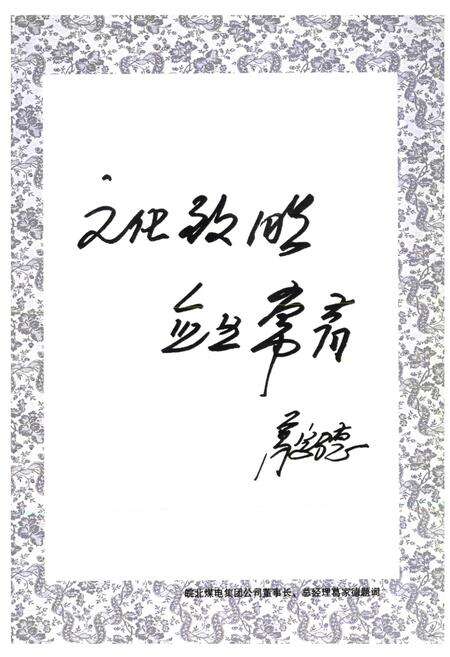 文化致胜
企业常青
葛家德
皖北煤电集团公司董事长、总经理葛家德题词